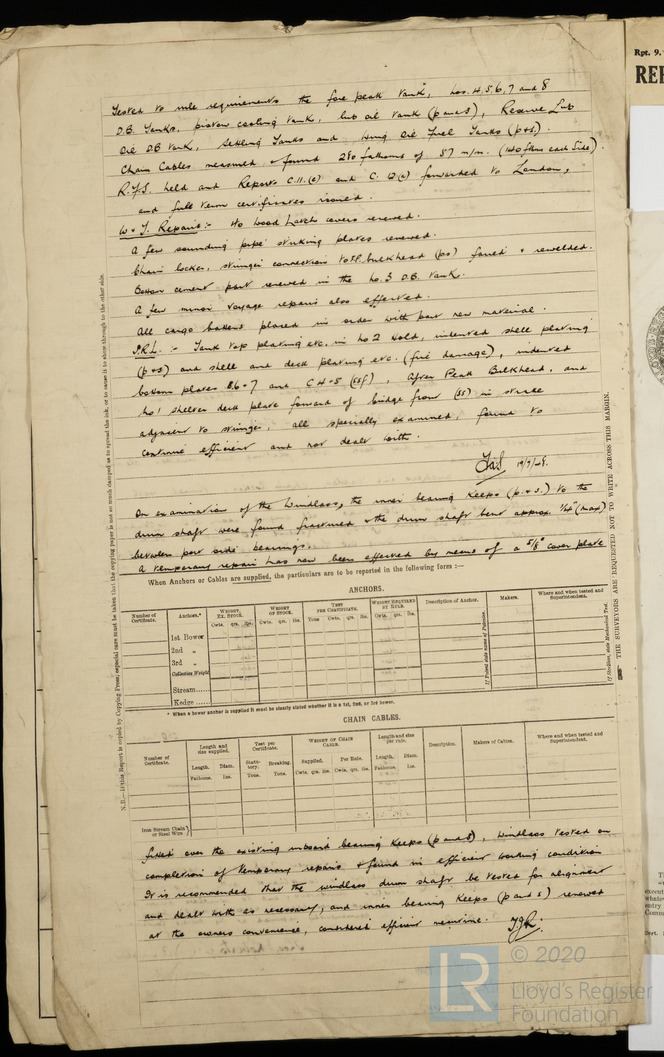 Tested to rule requirements the fore peak tank, nos. 4, 5, 6, 7 and 8
D.B. Tanks, piston cooling tank, lub oil tank (p and s), Reserve Lub
Oil DB tank, Settling Tanks and Wing Oil Fuel Tanks (p & s).
Chain Cables measured & found 280 fathoms of 57 m/m. (140 fthms each side).
held and Reports C.11.(c) and C. 12.(c) forwarded to London,
and full term certificates issued.
W & T. Repairs:- 40 Wood Hatch covers renewed.
A few sounding pipe striking plates renewed.
Chain locker, stringer connection to bulkhead (ps) faired & rewelded.
Bottom cement part renewed in the no. 3 D.B. tank.
A few minor voyage repairs also effected.
All cargo battens placed in order with part new material.
:- Tank top plating etc. in No 2 Hold, indented shell plating
(p & s) and shell and deck plating etc. (fire damage), indented
bottom plates B.6 - 7 and C 4 - 5, After Peak Bulkhead, and
no 1 shelter deck plate forward of bridge front (SS) in strake
adjacent to stringer, all specially examined, found to
continue efficient and not dealt with.
On examination of the Windlass, the inner bearing keeps (p. & s.) to the
drum shaft were found fractured & the drum shaft bent approx. 1/64" (max)
between port side bearings.
A temporary repair has now been effected by means of a 5/8" cover plate
When Anchors or Cables are supplied, the particulars are to be reported in the following form :—
ANCHORS.
Number of Certificate. Anchors.* Weight Ex. Stock. Weight of Stock. Test per Certificate. Weight Required by Rule. Description of Anchor. Makers. Where and when tested and Superintendent.
Cwts. qrs. lbs. Cwts. qrs. lbs. Tons Cwts. qrs. lbs. Cwts. qrs. lbs.
1st Bower
2nd „
3rd „
Collective Weight
Stream......
Kedge ......
If Patent state name of Patentee.
* When a bower anchor is supplied it must be clearly stated whether it is a 1st, 2nd, or 3rd bower.
CHAIN CABLES.
Number of Certificate. Length and size supplied. Test per Certificate. Weight of Chain Cable. Length and size per rule. Description. Makers of Cables. Where and when tested and Superintendent.
Length. Diam. Statutory. Breaking. Supplied. Per Rule. Length. Diam.
Fathoms. Ins. Tons. Tons. Cwts. qrs. lbs. Cwts. qrs. lbs. Fathoms. Ins.
Iron Stream Chain or Steel Wire
fitted over the existing inboard bearing keeps (p and s), Windlass tested on
completion of temporary repairs & found in efficient working condition
It is recommended that the windlass drum shaft be tested for alignment
and dealt with as necessary, and inner bearing keeps (p and s) renewed
at the owners convenience, considered efficient meantime.
N.B.—If this Report is copied by Copying Press, especial care must be taken that the copying paper is not so much damped as to spread the ink, or to cause it to show through to the other side.
THE SURVEYORS ARE REQUESTED NOT TO WRITE ACROSS THIS MARGIN.
Rpt. 9.
LR
© 2020
Lloyd's Register
Foundation